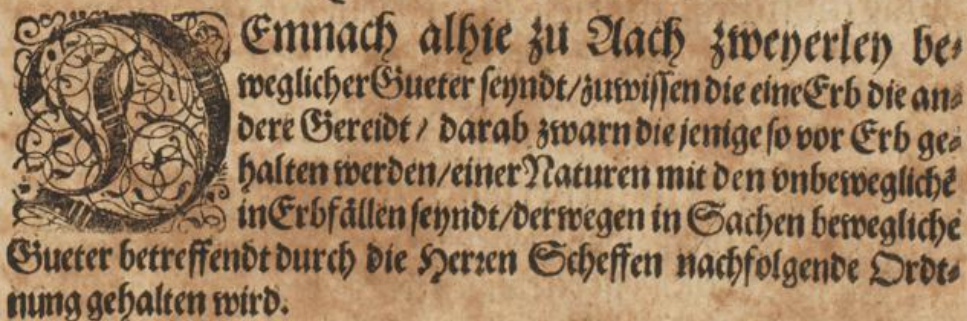 DEmnach alhie zu Aach zweyerley be⸗
weglicher Gueter seyndt/zuwissen die eine Erb die an⸗
dere Gereidt / darab zwarn die jenige so vor Erb ge⸗
halten werden/einer Naturen mit den vnbeweglichẽ
in Erbfällen seyndt/derwegen in Sachen bewegliche
Gueter betreffendt durch die Herren Scheffen nachfolgende Ordt⸗
nung gehalten wird.